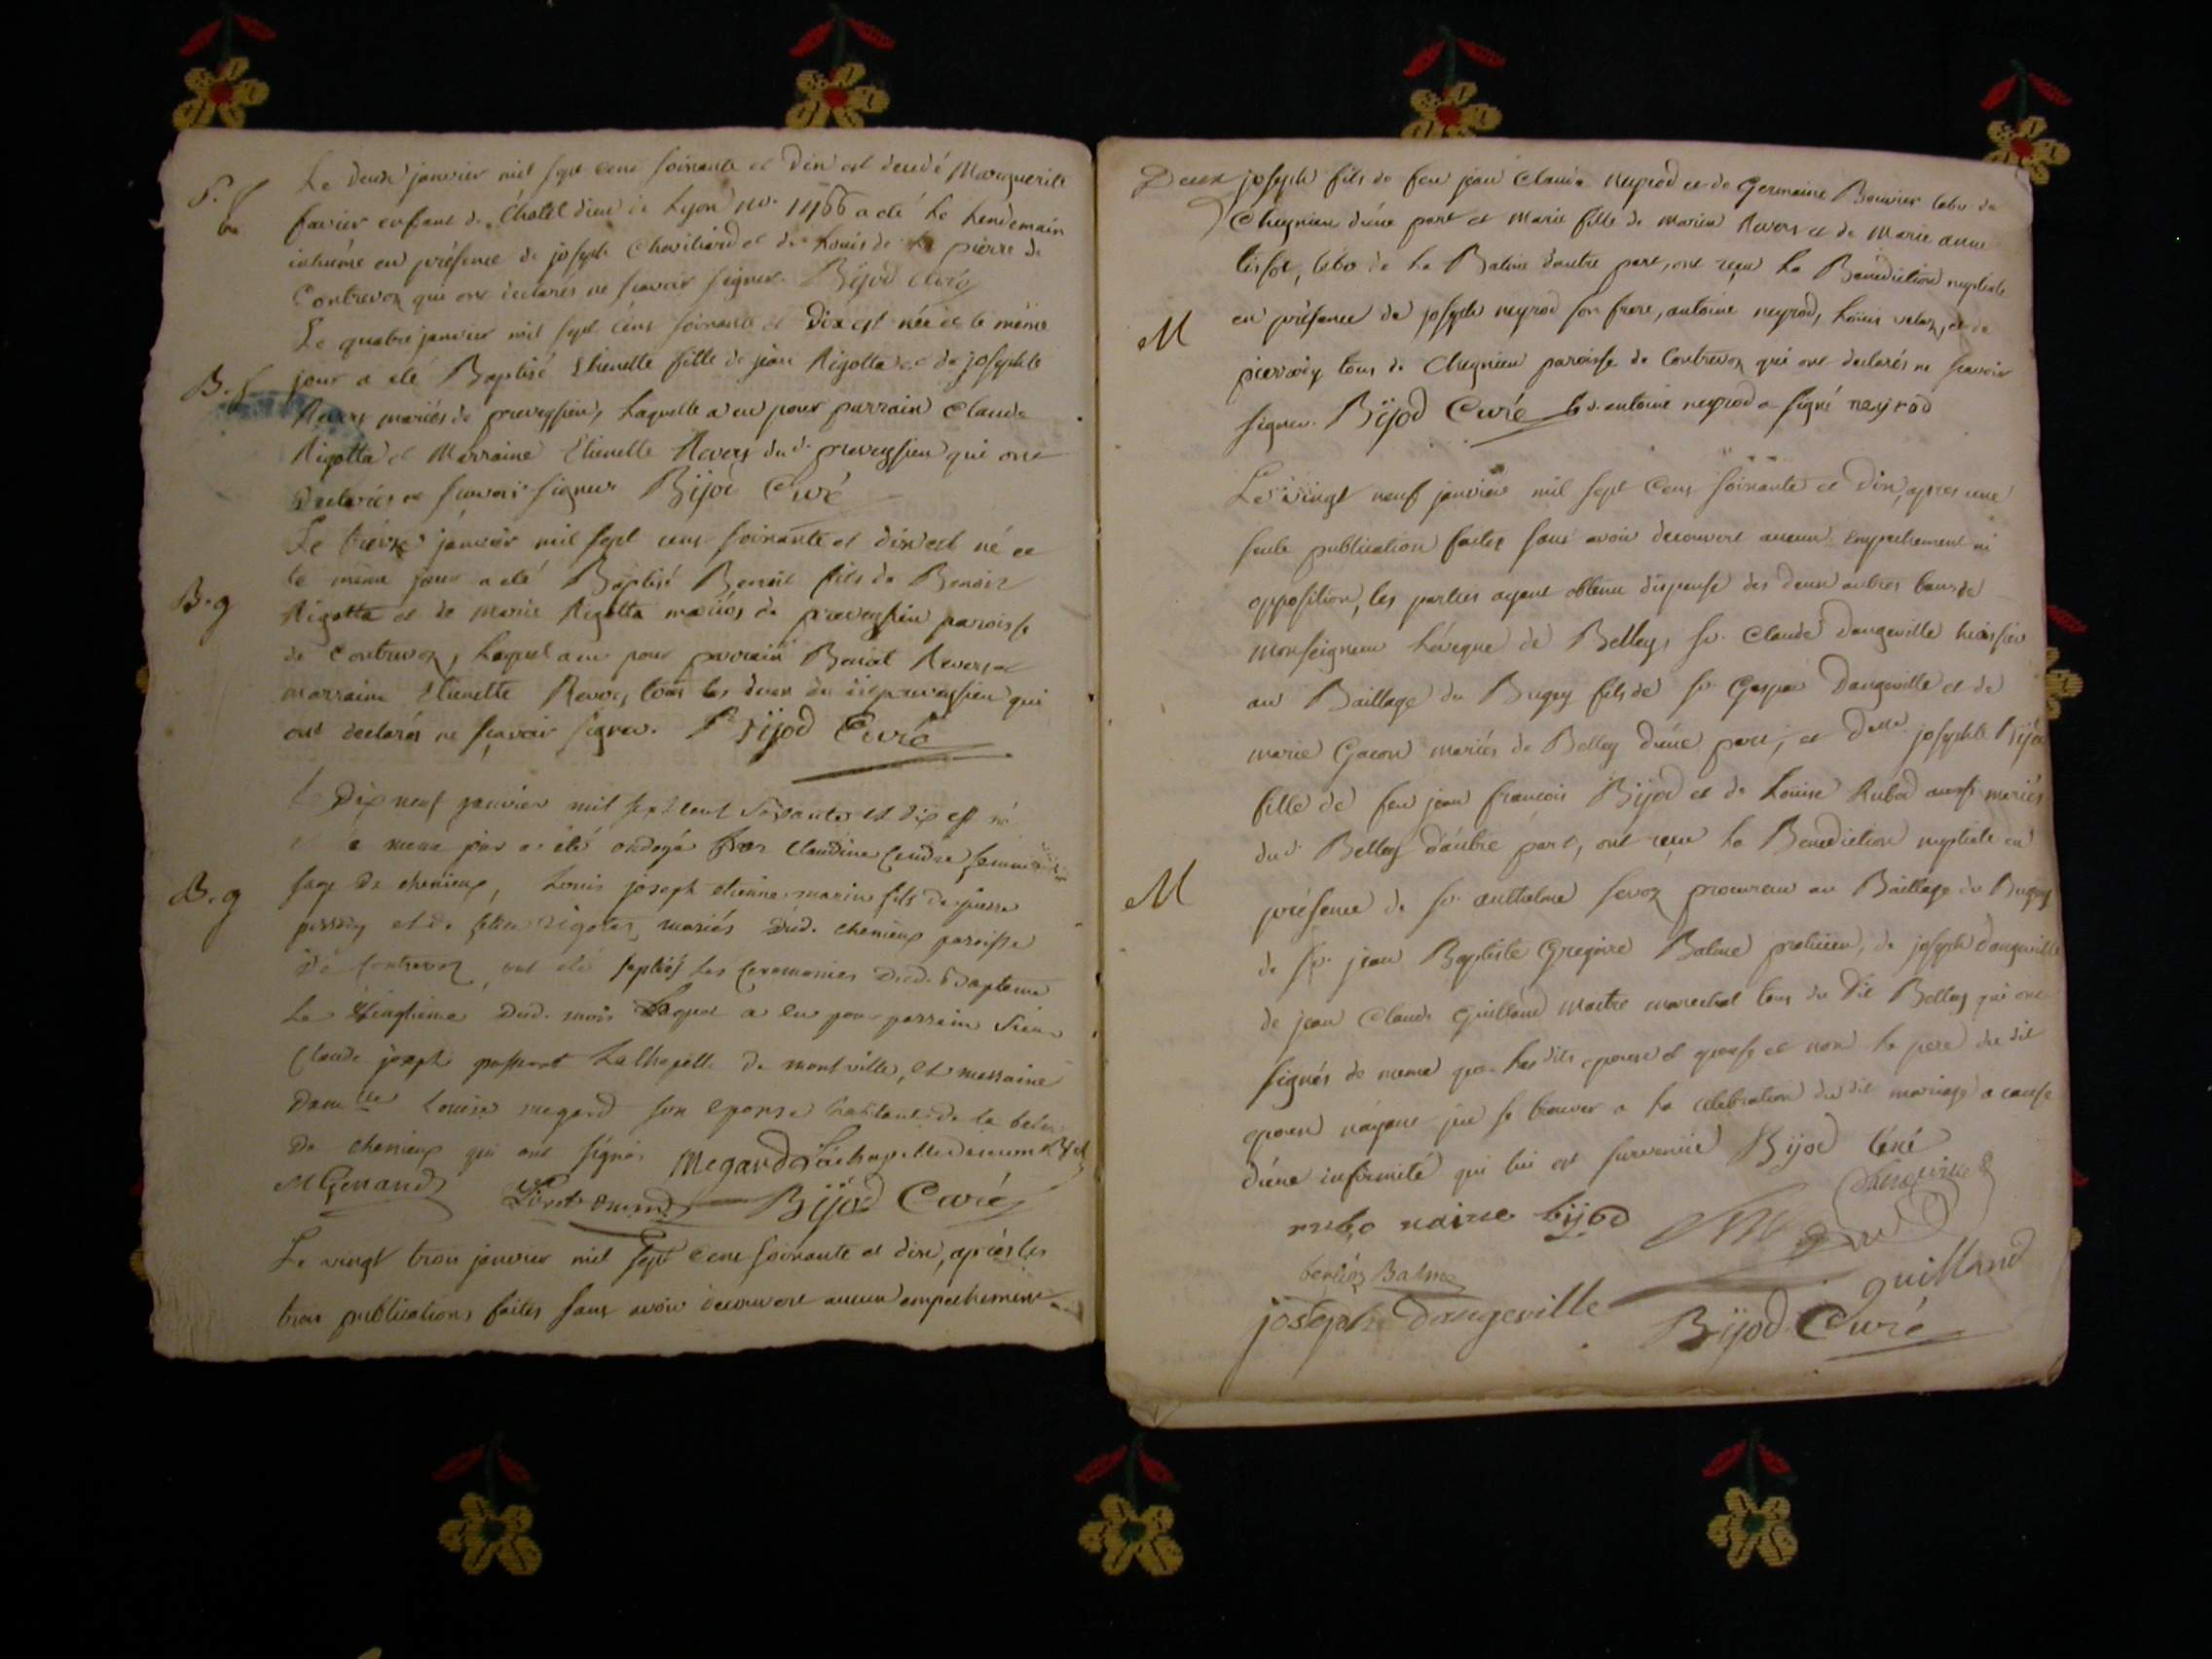 S. f
Le deux janvier mil sept cens soixante et dix est decedé Marguerite
favier enfant de l'hotel dieu de Lyon no. 11466 a eté le lendemain
inhumé en présence de joseph Chaviliard et de Louis de la pierre de
Contrevoz qui ont declarés ne scavoir signer. Bijod Curé
B. f
Le quatre janvier mil sept cens soixante et Dix est née et le même
jour a eté Baptisé Etienette fille de jean Rigotta et de josephte
Revers mariés de preveyssieu, laquelle a eu pour parrain Claude
Rigotta et Marraine Etienette Revers dud. preveyssieu qui ont
declarés ne scavoir signer Bijod Curé
B. g
Le treize janvier mil sept cens soixante et dix est né et
le même jour a eté Baptisé Benoit fils de Benoit
Rigotta et de marie Rigotta mariés de preveyssieu paroisse
de Contrevoz, lequel a eu pour parrain Benoit Revers et
marraine Etienette Revers tous les deux du dit preveyssieu qui
ont declarés ne scavoir signer. Bijod Curé
B. g
Le Dix neuf janvier mil sept cent soixante et dix est né
et le meme jour a été ondoyé par Claudine Cendre femme
sage de chenieux, Louis joseph etienne marin fils de pierre
et de rigotta mariés dud. chenieux paroisse
de Contrevoz, ont été les ceremonies dud. Bapteme
Le vingtieme dud. mois Lequel a eu pour parrain Sieur
Claude joseph passerat Lachapelle de montville, et marraine
Dame Louise megard son epouse habitants de
de chenieux qui ont signés Megard Lachapelle
Bijod Curé
Le vingt trois janvier mil sept cens soixante et dix, après les
trois publications faites sans avoir decouvert aucun empechement
Deux joseph fils de feu jean Claude neyrod et de Germaine Bouvier labr. de
Chegnieu d'une part et Marie fille de Marin Revers et de Marie anne
tissot, labr. de La Balme d'autre part, ont reçu la Benediction nuptiale
M
en présence de joseph neyrod son frere, antoine neyrod, Louis veloz, et de
tous de Chegnieu paroisse de Contrevoz qui ont declarés ne scavoir
signer. Bijod Curé led. antoine neyrod a signé neyrod
Le vingt neuf janvier mil sept cens soixante et dix, apres une
seule publication faite sans avoir decouvert aucun empechement ni
opposition, les parties ayant obtenu dispense des deux autres bans de
Monseigneur l'éveque de Belley, sr. Claude Dangeville huissier
au Baillage du Bugey fils de sr. Gaspar Dangeville et de
marie Gacon mariés de Belley d'une part, et Delle. josephte Bijod
fille de feu jean francois Bijod et de Louise Rubod aussi mariés
M
dud. Belley d'autre part, ont reçu la Benediction nuptiale en
présence de sr. anthelme sevoz procureur au Baillage du Bugey
de sr. jean Baptiste Gregoire Balme praticien, de joseph dangeville
de jean Claude Guilland Maitre marechal tous du dit Belley qui ont
signés de meme que les dits epoux et epouse et non le pere du dit
epoux n'ayant pu se trouver a la celebration du dit mariage a cause
d'une infirmité qui lui est survenüe Bijod Curé
Dangeville
bijod
Balme
guilland
joseph Dangeville
Bijod Curé